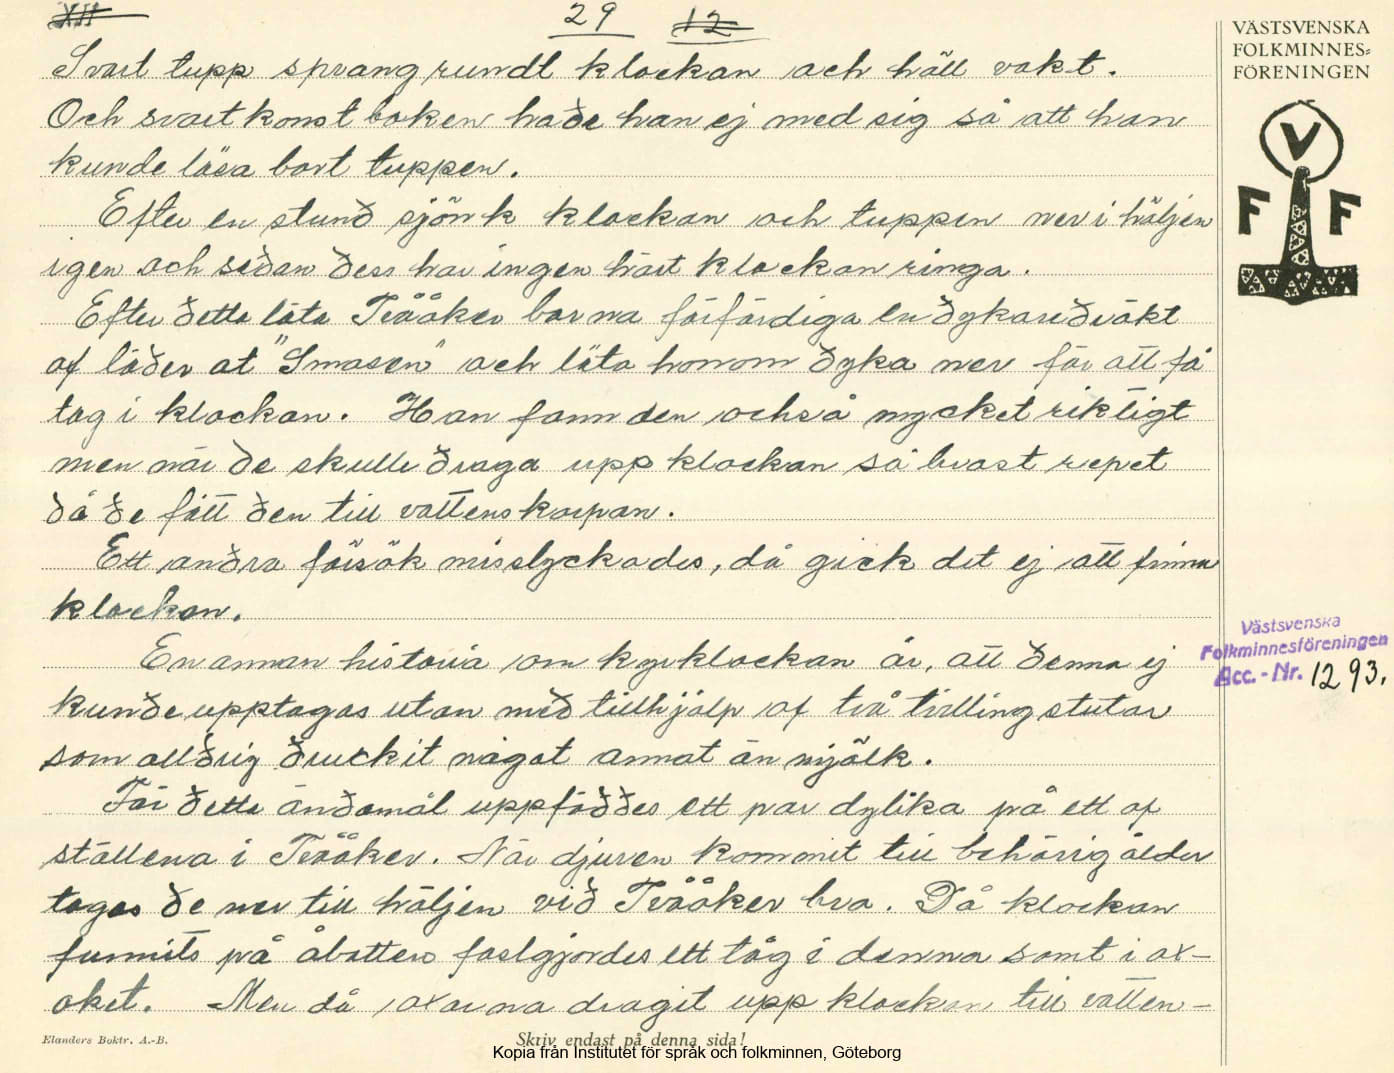 XII 29 12
VÄSTSVENSKA
FOLKMINNES-
FÖRENINGEN
V
F F
Svart tupp sprang rundt klockan och höll vakt.
Och svartkonstboken hade han ej med sig så att han
kunde läsa bort tuppen.
Efter en stund sjönk klockan och tuppen ner i höljen
igen och sedan dess har ingen hört klockan ringa.
Efter detta läto Tvååker borna förfärdiga en dykaredräkt
af läder at "Smasen" och läto honom dyka ner för att få
tag i klockan. Han fann den också mycket riktigt
men när de skulle draga upp klockan så brast repet
då de fått den till vattenskorpan.
Ett andra försök misslyckades, då gick det ej att finna
klockan.
En annan historia om kyrklockan är, att denna ej
kunde upptagas utan med tillhjälp af två tvillingstutar
som alldrig druckit något annat än mjölk.
För detta ändamål uppföddes ett par dylika på ett af
ställena i Tvååker. När djuren kommit till behörig ålder
togos de ner till höljen vid Tvååker bro. Då klockan
funnits på åbotten fastgjordes ett tåg i denna samt i ox-
oket. Men då oxarna dragit upp klockan till vatten-
Västsvenska
Folkminnesföreningen
Acc.-Nr. 1293.
Elanders Boktr. A.-B.
Skriv endast på denna sida!
Kopia från Institutet för språk och folkminnen, Göteborg